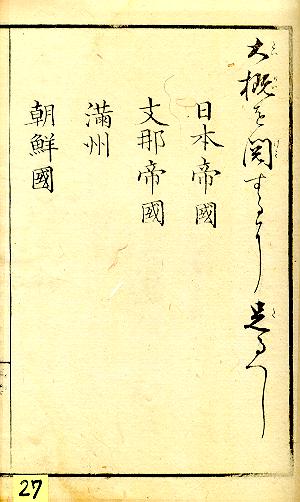 大概を関するに足るへし
日本帝國
支那帝國
滿州
朝鮮國
27